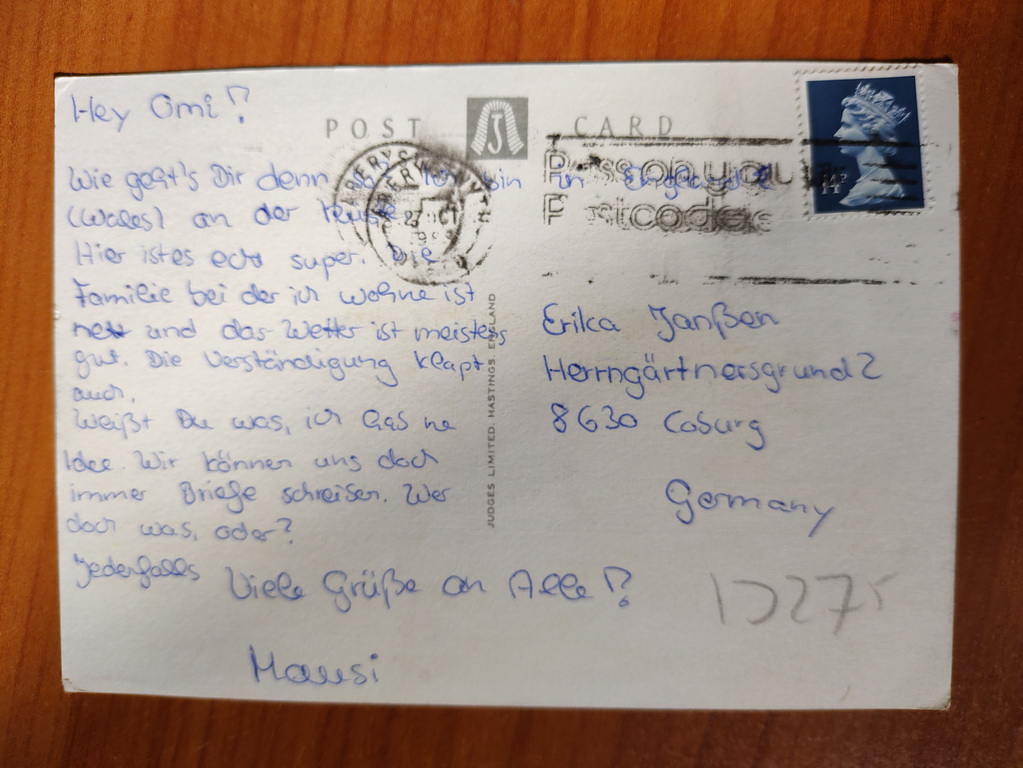 Hey Omi!
POST CARD
Wie geht's Dir denn so? Ich bin in England
(Wales) an der Küste
Hier ist es echt super. Die
Familie bei der ich wohne ist
nett und das Wetter ist meistens
gut. Die Verständigung klapt
auch.
Weißt Du was, ich hab ne
Idee. Wir können uns doch
immer Briefe schreiben. Wer
doch was, oder?
Jedenfalls Viele Grüße an Alle!
Mausi
JUDGES LIMITED. HASTINGS. ENGLAND
Pass on your
Postcode
Erika Janßen
Herrngärtnersgrund 2
8630 Coburg
Germany